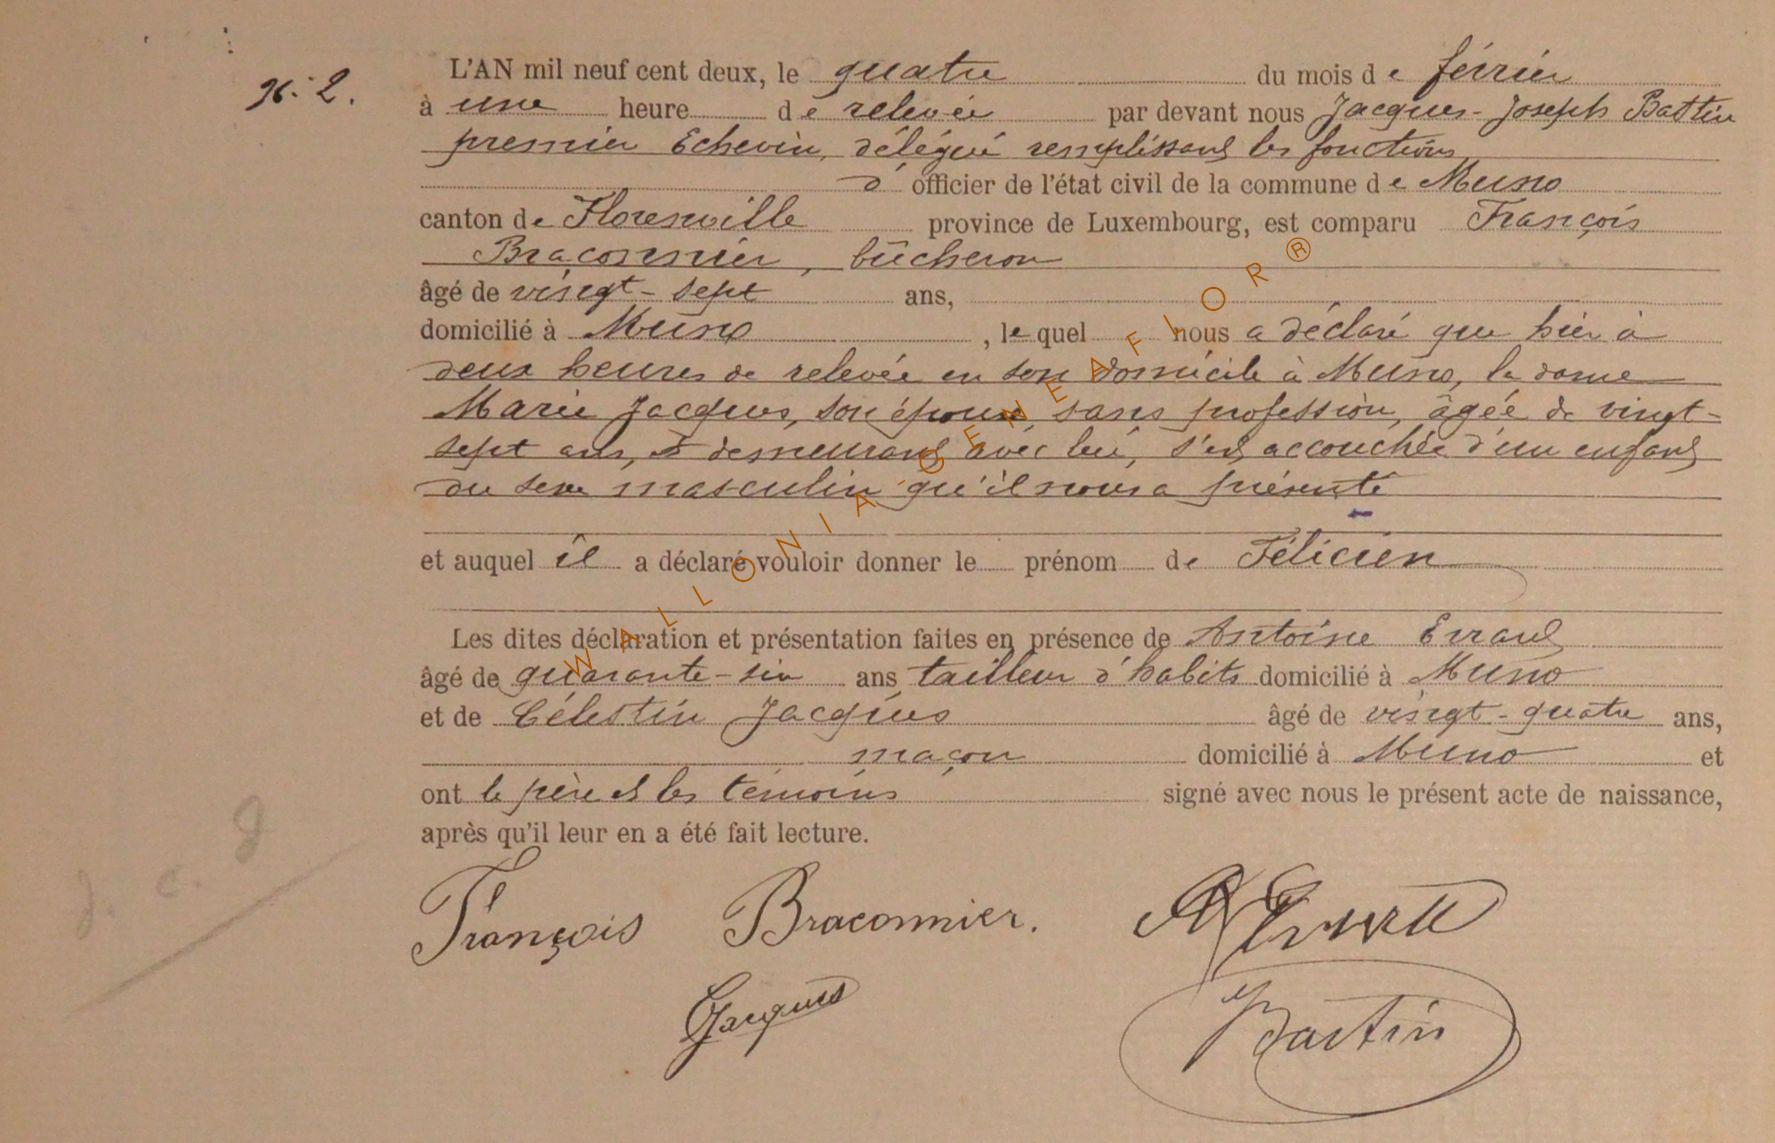 N° 2.
L'AN mil neuf cent deux, le quatre du mois de février
à une heure de relevée par devant nous Jacques-Joseph Bastin
premier Echevin, délégué remplissant les fonctions
d' officier de l'état civil de la commune de Muno
canton de Florenville province de Luxembourg, est comparu François
Braconnier, bûcheron
âgé de vingt-sept ans,
domicilié à Muno, lequel nous a déclaré que hier à
deux heures de relevée en son domicile à Muno, la dame
Marie Jacques, son épouse, sans profession, âgée de vingt-
sept ans, et demeurant avec lui, s'est accouchée d'un enfant
du sexe masculin qu'il nous a présenté
et auquel il a déclaré vouloir donner le prénom de Félicien
Les dites déclaration et présentation faites en présence de Antoine Errard
âgé de quarante-six ans, tailleur d'habits domicilié à Muno
et de Célestin Jacques âgé de vingt-quatre ans,
maçon domicilié à Muno et
ont le père et les témoins signé avec nous le présent acte de naissance,
après qu'il leur en a été fait lecture.
François Braconnier.
CJacques
Bastin
WALLONIA GENEAFLOR®